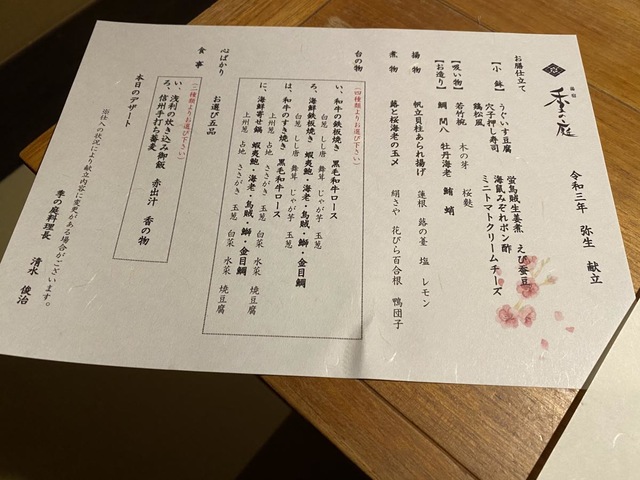 季の庭
令和三年 弥生 献立
お膳仕立て
【小鉢】 うぐいす豆腐 蛍烏賊生姜煮 えび蚕豆
穴子押し寿司 海鼠みぞれポン酢
鶏松風 ミニトマトクリームチーズ
【吸い物】 若竹椀 木の芽 桜麩
【お造り】 鯛 間八 牡丹海老 鮪 蛸
揚物 帆立貝柱あられ揚げ 蓮根 蕗の薹 塩 レモン
煮物 蕗と桜海老の玉〆 絹さや 花びら百合根 鴨団子
台の物 (四種類よりお選び下さい)
い、和牛の鉄板焼き・黒毛和牛ロース
白葱 しし唐 舞茸 じゃが芋 玉葱
ろ、海鮮鉄板焼き・蝦夷鮑・海老・烏賊・鰤・金目鯛
白葱 しし唐 舞茸 じゃが芋 玉葱
は、和牛のすき焼き・黒毛和牛ロース
上州葱 占地 ささがき 玉葱 白菜 水菜 焼豆腐
に、海鮮寄せ鍋・蝦夷鮑・海老・烏賊・鰤・金目鯛
上州葱 占地 ささがき 玉葱 白菜 水菜 焼豆腐
心ばかり お選び五品
食事 (二種類よりお選び下さい)
い、浅利の炊き込み御飯 赤出汁 香の物
ろ、信州手打ち蕎麦
本日のデザート
※仕入の状況により献立内容に変更がある場合がございます。
季の庭料理長 清水 俊治